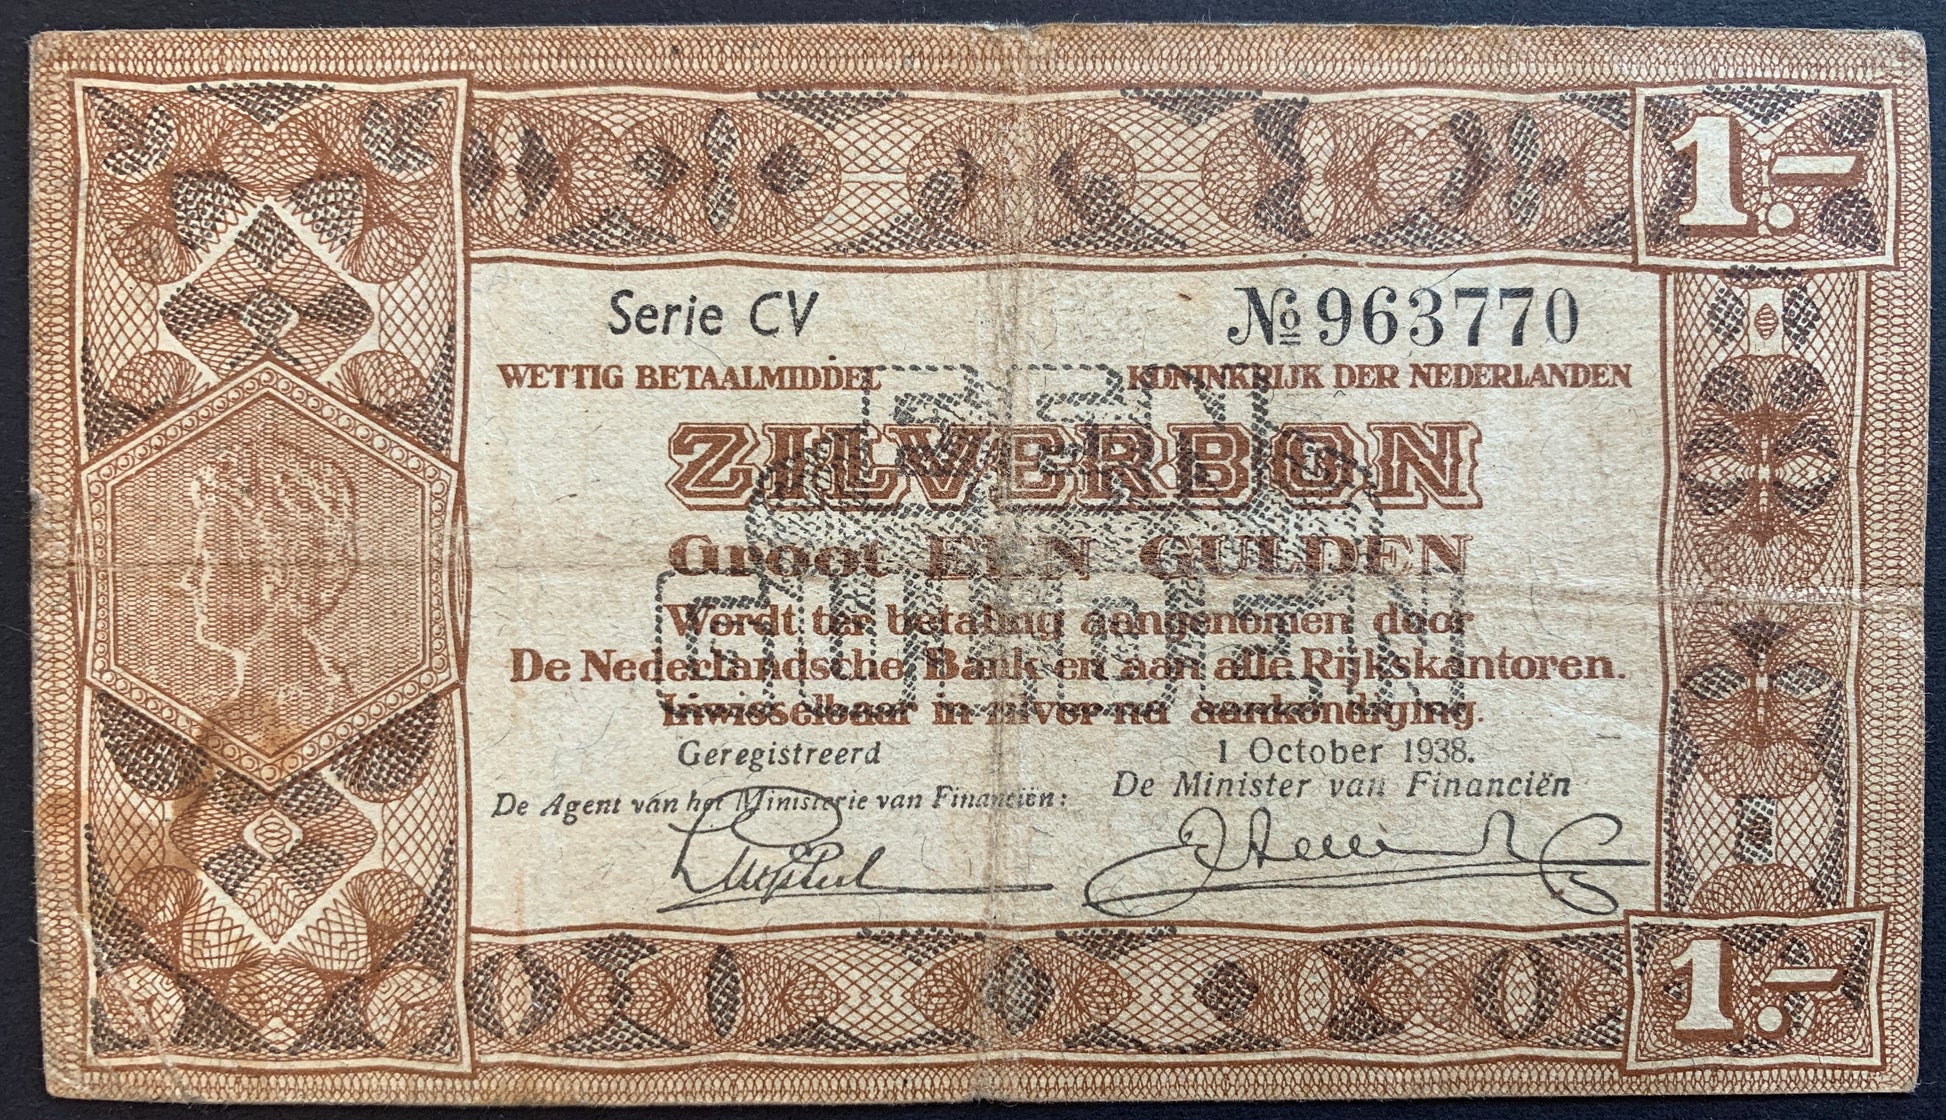 1.-
Serie CV
№ 963770
WETTIG BETAALMIDDEL
KONINKRIJK DER NEDERLANDEN
ZILVERBON
Groot EEN GULDEN
EEN
GULDEN
Wordt ter betaling aangenomen door
De Nederlandsche Bank en aan alle Rijkskantoren.
Inwisselbaar in zilver na aankondiging.
Geregistreerd
1 October 1938.
De Agent van het Ministerie van Financiën:
De Minister van Financiën
1.-